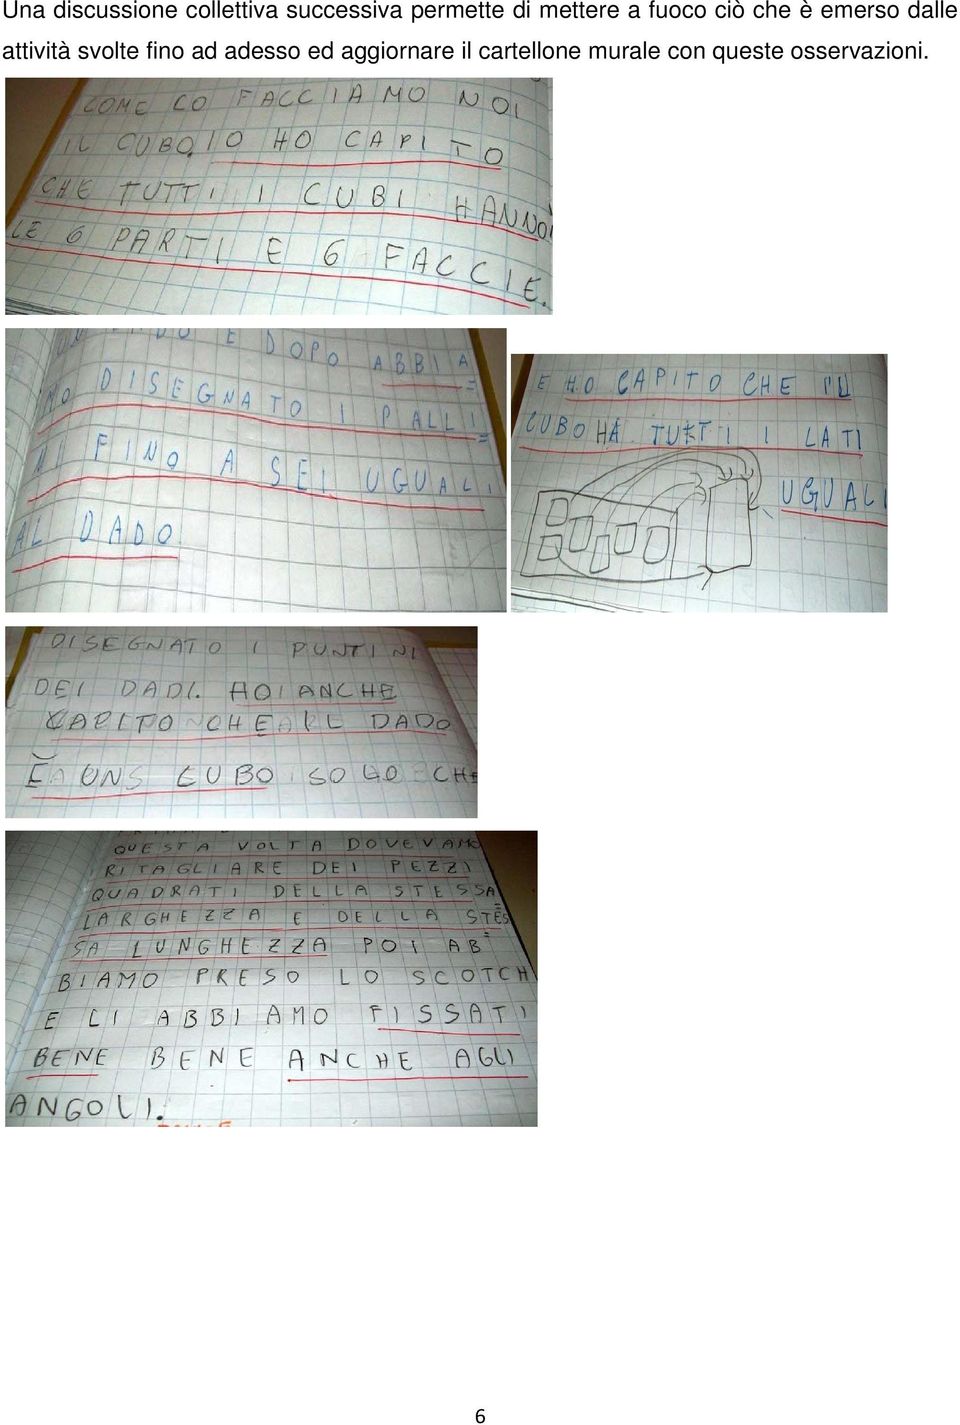 Una discussione collettiva successiva permette di mettere a fuoco ciò che è emerso dalle
attività svolte fino ad adesso ed aggiornare il cartellone murale con queste osservazioni.
COME LO FACCIAMO NOI
IL CUBO. IO HO CAPITO
CHE TUTTI I CUBI HANNO
LE 6 PARTI E 6 FACCIE.
E DOPO ABBIA=
MO DISEGNATO I PALLI=
NI FINO A SEI UGUALI
AL DADO.
E HO CAPITO CHE IL
CUBO HA TUTTI I LATI
UGUALI
DISEGNATO I PUNTINI
DEI DADI. HOI ANCHE
CAPITO CHE IL DADO
E UN CUBO SOLO CHE
QUESTA VOLTA DOVEVAMO
RITAGLIARE DEI PEZZI
QUADRATI DELLA STESSA
LARGHEZZA E DELLA STES=
SA LUNGHEZZA POI AB=
BIAMO PRESO LO SCOTCH
E LI ABBIAMO FISSATI
BENE BENE ANCHE AGLI
ANGOLI.
6